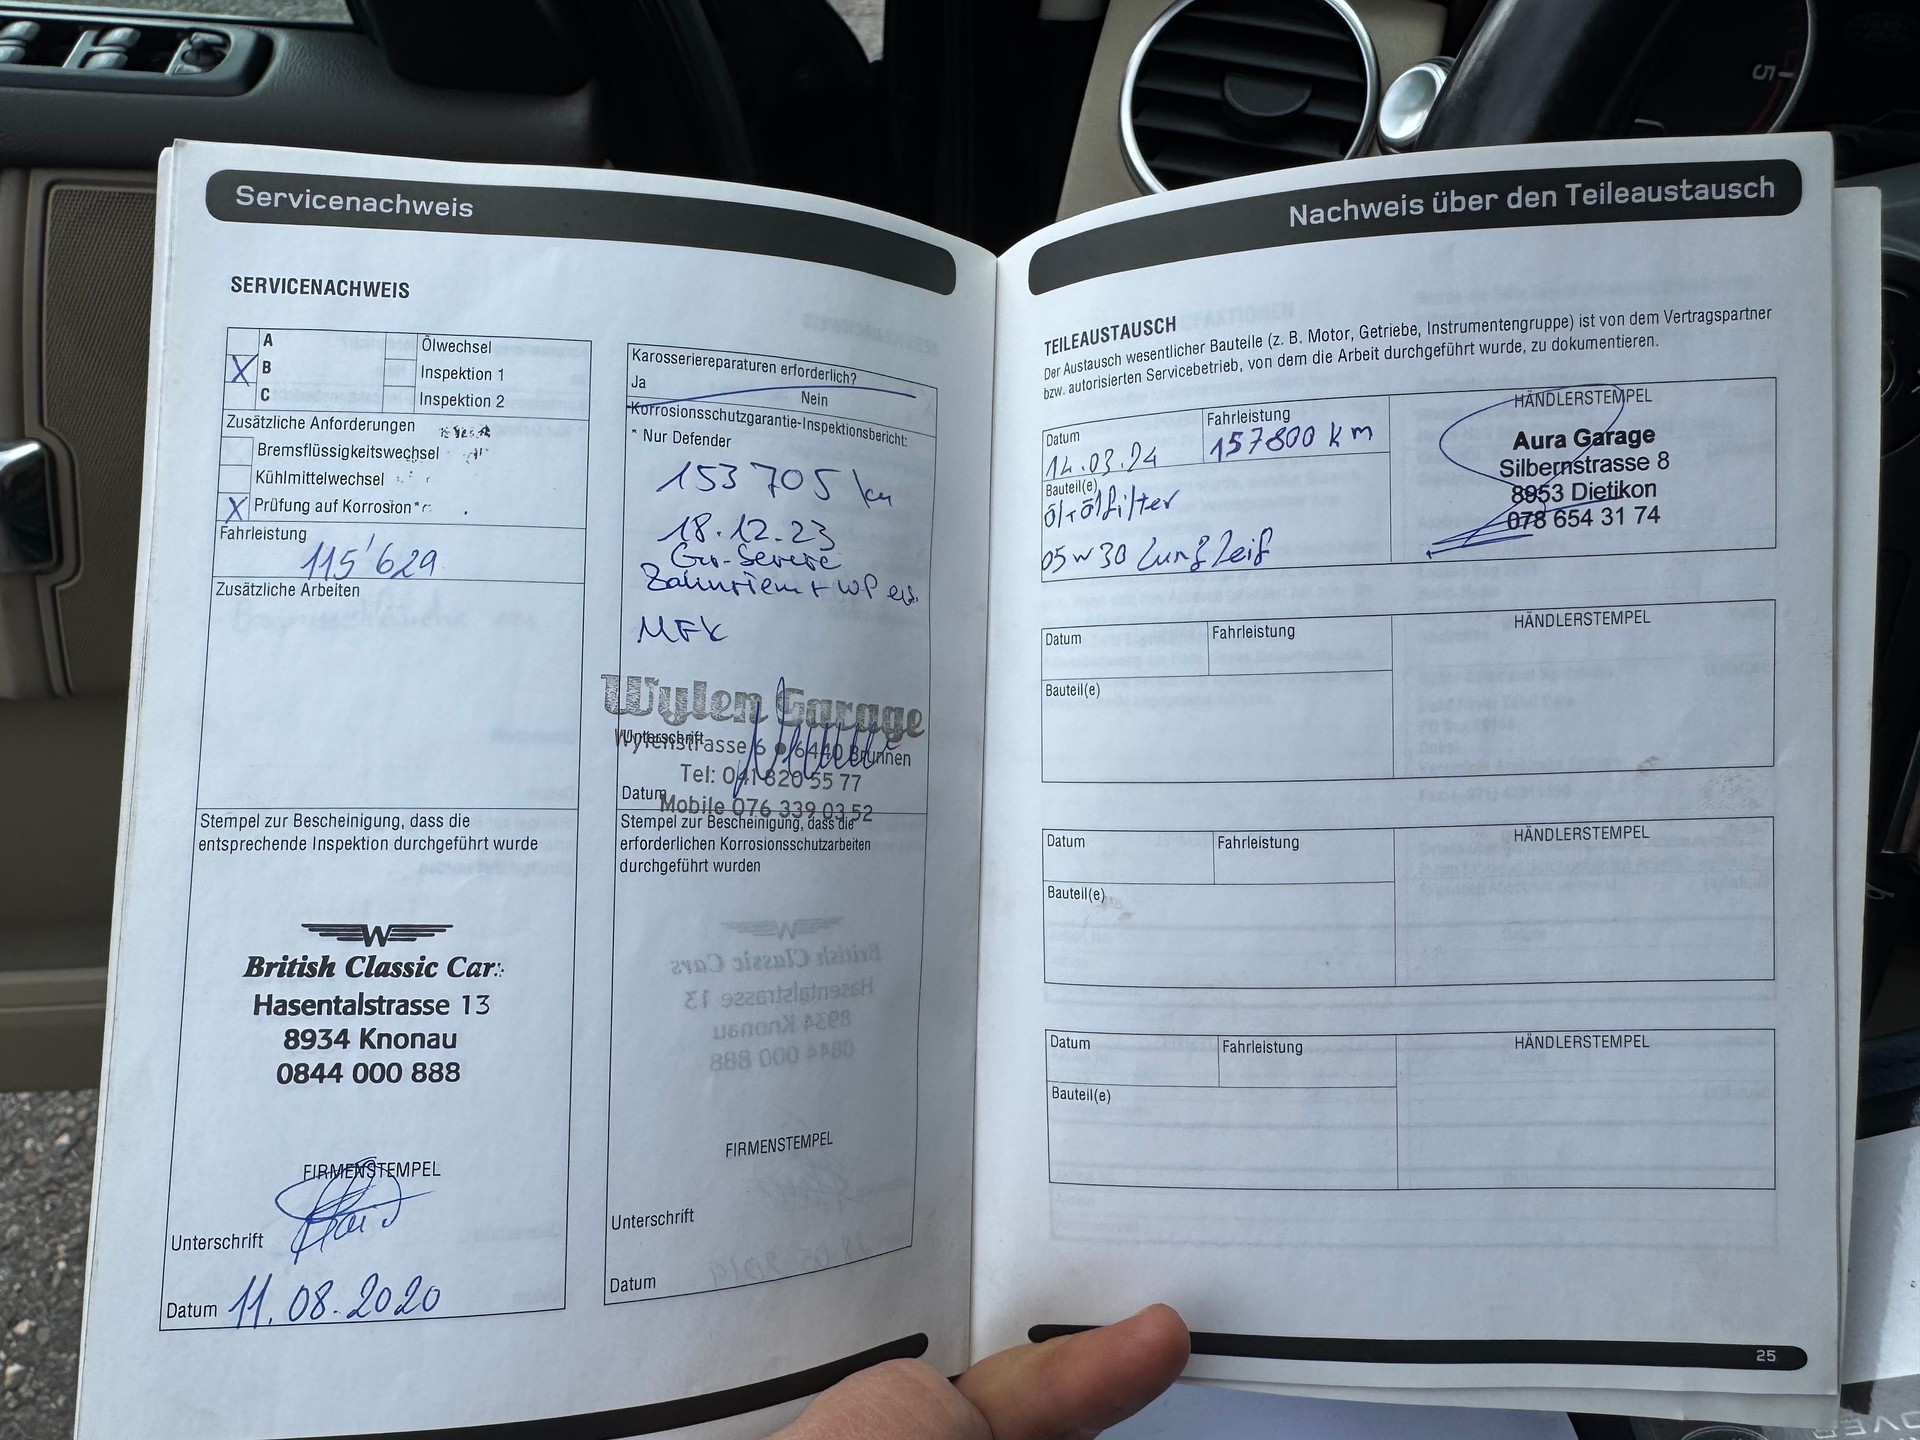 Servicenachweis
SERVICENACHWEIS
A
X B
C
Ölwechsel
Inspektion 1
Inspektion 2
Zusätzliche Anforderungen
Bremsflüssigkeitswechsel
Kühlmittelwechsel
X Prüfung auf Korrosion*
Fahrleistung
115'629
Zusätzliche Arbeiten
Stempel zur Bescheinigung, dass die
entsprechende Inspektion durchgeführt wurde
W
British Classic Cars
Hasentalstrasse 13
8934 Knonau
0844 000 888
FIRMENSTEMPEL
Unterschrift
Datum 11.08.2020
Karosseriereparaturen erforderlich?
Ja
Nein
Korrosionsschutzgarantie-Inspektionsbericht:
* Nur Defender
153705 km
18.12.23
Gr. Service
Zahnriem + WP ers.
MFK
Wylen Garage
Unterschrift
Wylenstrasse 6 • 6440 Brunnen
Tel: 041 820 55 77
Datum
Mobile 076 339 03 52
Stempel zur Bescheinigung, dass die
erforderlichen Korrosionsschutzarbeiten
durchgeführt wurden
FIRMENSTEMPEL
Unterschrift
Datum
Nachweis über den Teileaustausch
TEILEAUSTAUSCH
Der Austausch wesentlicher Bauteile (z. B. Motor, Getriebe, Instrumentengruppe) ist von dem Vertragspartner
bzw. autorisierten Servicebetrieb, von dem die Arbeit durchgeführt wurde, zu dokumentieren.
Datum
14.03.24
Fahrleistung
157800 km
Bauteil(e)
Öl + Ölfilter
05w30
HÄNDLERSTEMPEL
Aura Garage
Silbernstrasse 8
8953 Dietikon
078 654 31 74
Datum
Fahrleistung
HÄNDLERSTEMPEL
Bauteil(e)
Datum
Fahrleistung
HÄNDLERSTEMPEL
Bauteil(e)
Datum
Fahrleistung
HÄNDLERSTEMPEL
Bauteil(e)
25
5